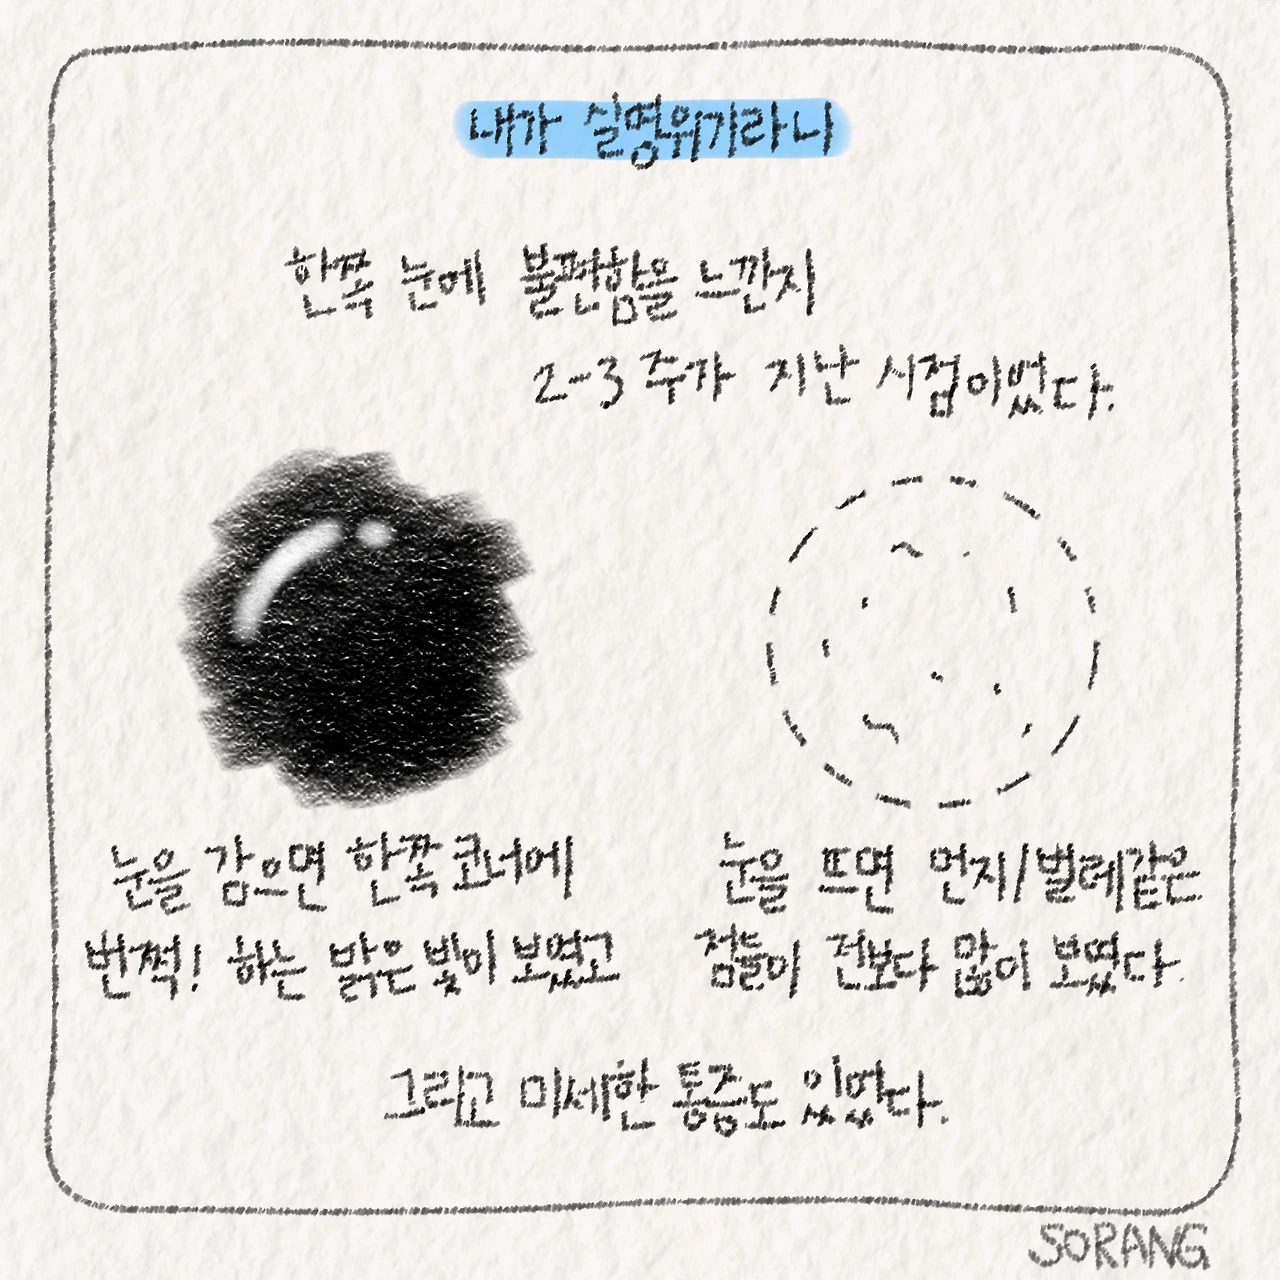 내가 실명위기라니
한쪽 눈에 불편함을 느낀지
2-3주가 지난 시점이었다.
눈을 감으면 한쪽 코너에
번쩍! 하는 밝은 빛이 보였고
눈을 뜨면 먼지/벌레같은
점들이 전보다 많이 보였다.
그리고 미세한 통증도 있었다.
SORANG